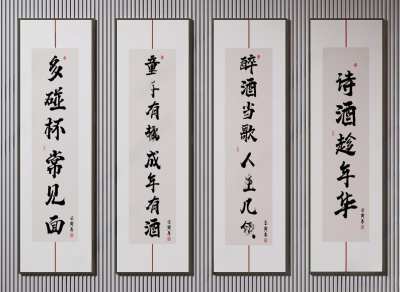 多碰杯常见面
童年有糖成年有酒
醉酒当歌人生几
诗酒趁年华